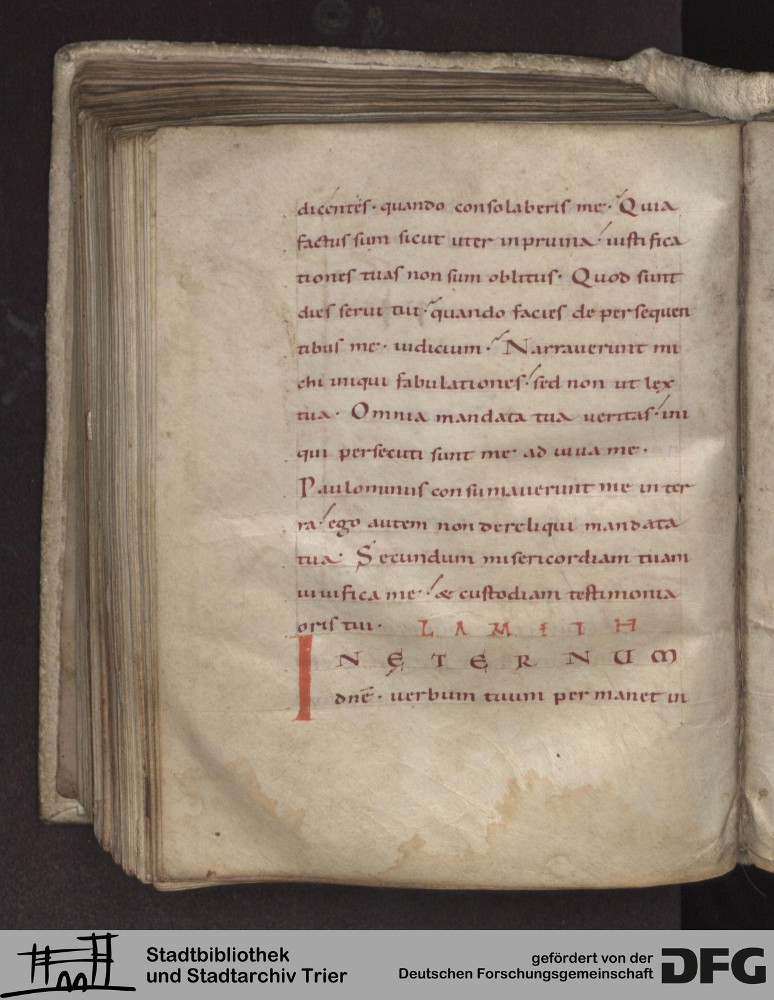 dicentes · quando consolaberis me · Quia
factus sum sicut uter in pruina · iustifica
tiones tuas non sum oblitus · Quod sunt
dies serui tui · quando facies de persequen
tibus me · iudicium · Narrauerunt mi
chi iniqui fabulationes · sed non ut lex
tua · Omnia mandata tua ueritas · ini
qui persecuti sunt me adiuua me ·
Paulominus consumauerunt me in ter
ra · ego autem non dereliqui mandata
tua · Secundum misericordiam tuam
uiuifica me · & custodiam testimonia
oris tui · LAMETH
IN ĘTERNUM
dnē · uerbum tuum permanet in
Stadtbibliothek
und Stadtarchiv Trier
gefördert von der
Deutschen Forschungsgemeinschaft
DFG